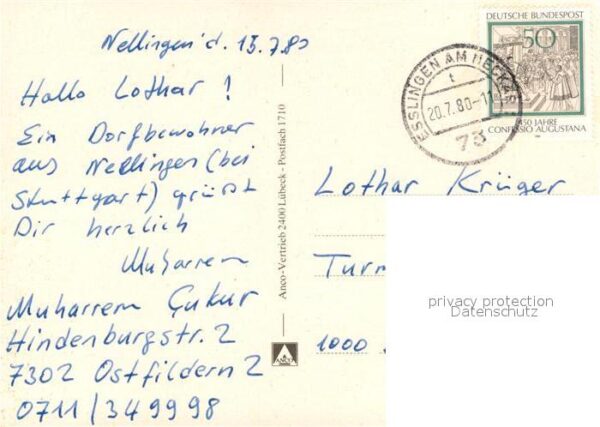 Nellingen d. 13.7.80
Hallo Lothar !
Ein Dorfbewohner
aus Nellingen (bei
Stuttgart) grüßt
Dir herzlich
Muharrem
Muharrem Çukur
Hindenburgstr. 2
7302 Ostfildern 2
0711/349998
Anco-Vertrieb 2400 Lübeck - Postfach 1710
ANCO
DEUTSCHE BUNDESPOST
50
450 JAHRE
CONFESSIO AUGUSTANA
ESSLINGEN AM NECKAR
t
20.7.80-11
73
Lothar Krüger
Turm
1000
privacy protection
Datenschutz